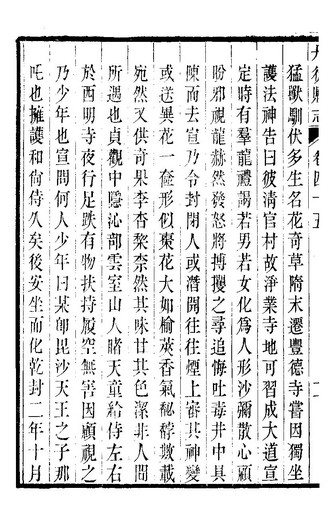 猛獸馴伏多生名花奇草隋末遷豐德寺嘗因獨坐
護法神告曰彼清官村故淨業寺地可習成大道宣
定時有羣龍禮謁若男若女化為人形沙彌散心顧
盼邪視龍赫然發怒將搏擾之尋追悔吐毒井中具
陳而去宣乃令封閉人或潛開往往煙上審其神變
或送異花一奩形似棗花大如榆莢香氣秘馞數載
宛然又供奇果李杏棃柰然其味甘其色潔非人間
所遇也貞觀中隱沁部雲室山人睹天童給侍左右
於西明寺夜行足跌有物扶持履空無害因顧視之
乃少年也宣問何人少年曰某即毘沙天王之子那
吒也擁護和尚侍久矣後安坐而化乾封二年十月
卷四十五